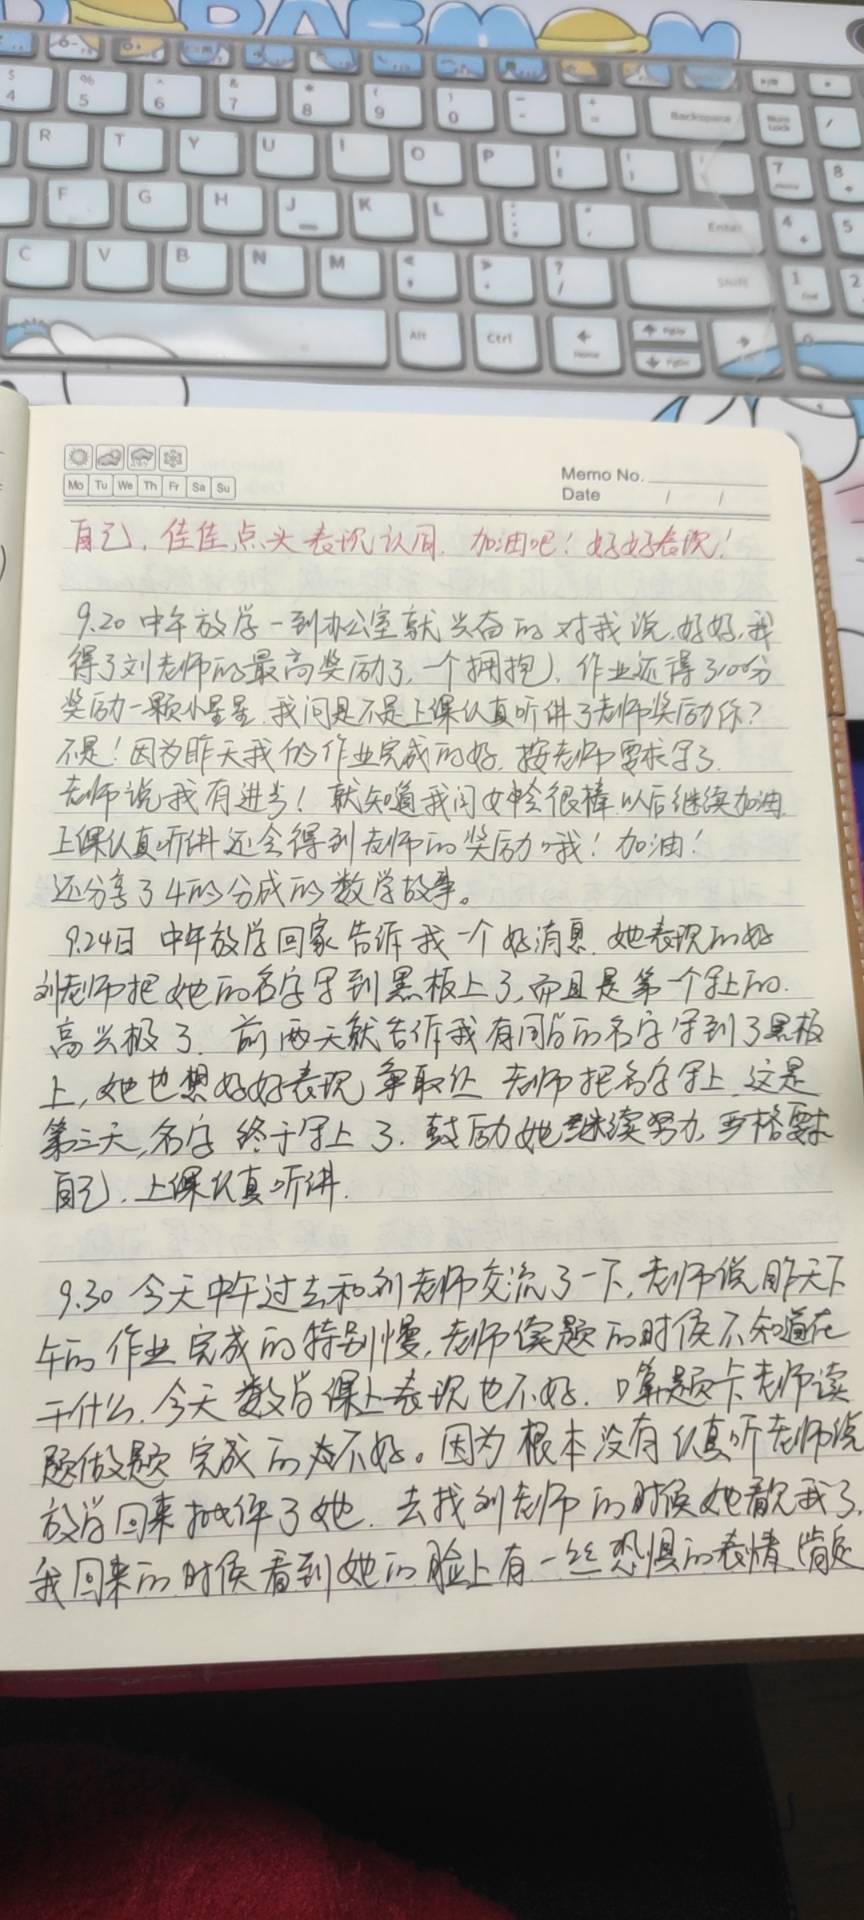 DORAEMON
$ 4 % 5 ^ 6 & 7 * 8 ( 9 ) 0 - + = Backspace Num Lock /
R T Y U I O P 7 8
F G H J K L Enter 4 5
C V B N M ? / Shift 1 End 2
Alt Ctrl Home PgUp PgDn 0
Mo Tu We Th Fr Sa Su
Memo No.
Date / /
自己,佳佳点头表现认同,加油吧!好好表现!
9.20 中午放学一到办公室就兴奋的对我说,好好,我
得了刘老师的最高奖励了,一个拥抱),作业还得了100分
奖励一颗小星星,我问是不是上课认真听讲了老师奖励你?
不是!因为昨天我的作业完成的好,按老师要求写了.
老师说我有进步!就知道我闺女会很棒,以后继续加油,
上课认真听讲还会得到老师的奖励哦!加油!
还分享了4的分成的数学故事。
9.24日 中午放学回家告诉我一个好消息,她表现的好
刘老师把她的名字写到黑板上了,而且是第一个写上的.
高兴极了.前两天就告诉我有同学的名字写到了黑板
上,她也想好好表现,争取让老师把名字写上,这是
第三天,名字终于写上了.鼓励她继续努力,严格要求
自己,上课认真听讲.
9.30 今天中午过去和刘老师交流了一下,老师说昨天下
午的作业完成的特别慢,老师读题的时候不知道在
干什么.今天数学课上表现也不好.口算题卡老师读
题做题完成的不好。因为根本没有认真听老师说
放学回来批评了她.去找刘老师的时候她看见我了,
我回来的时候看到她的脸上有一丝恐惧的表情,肯定